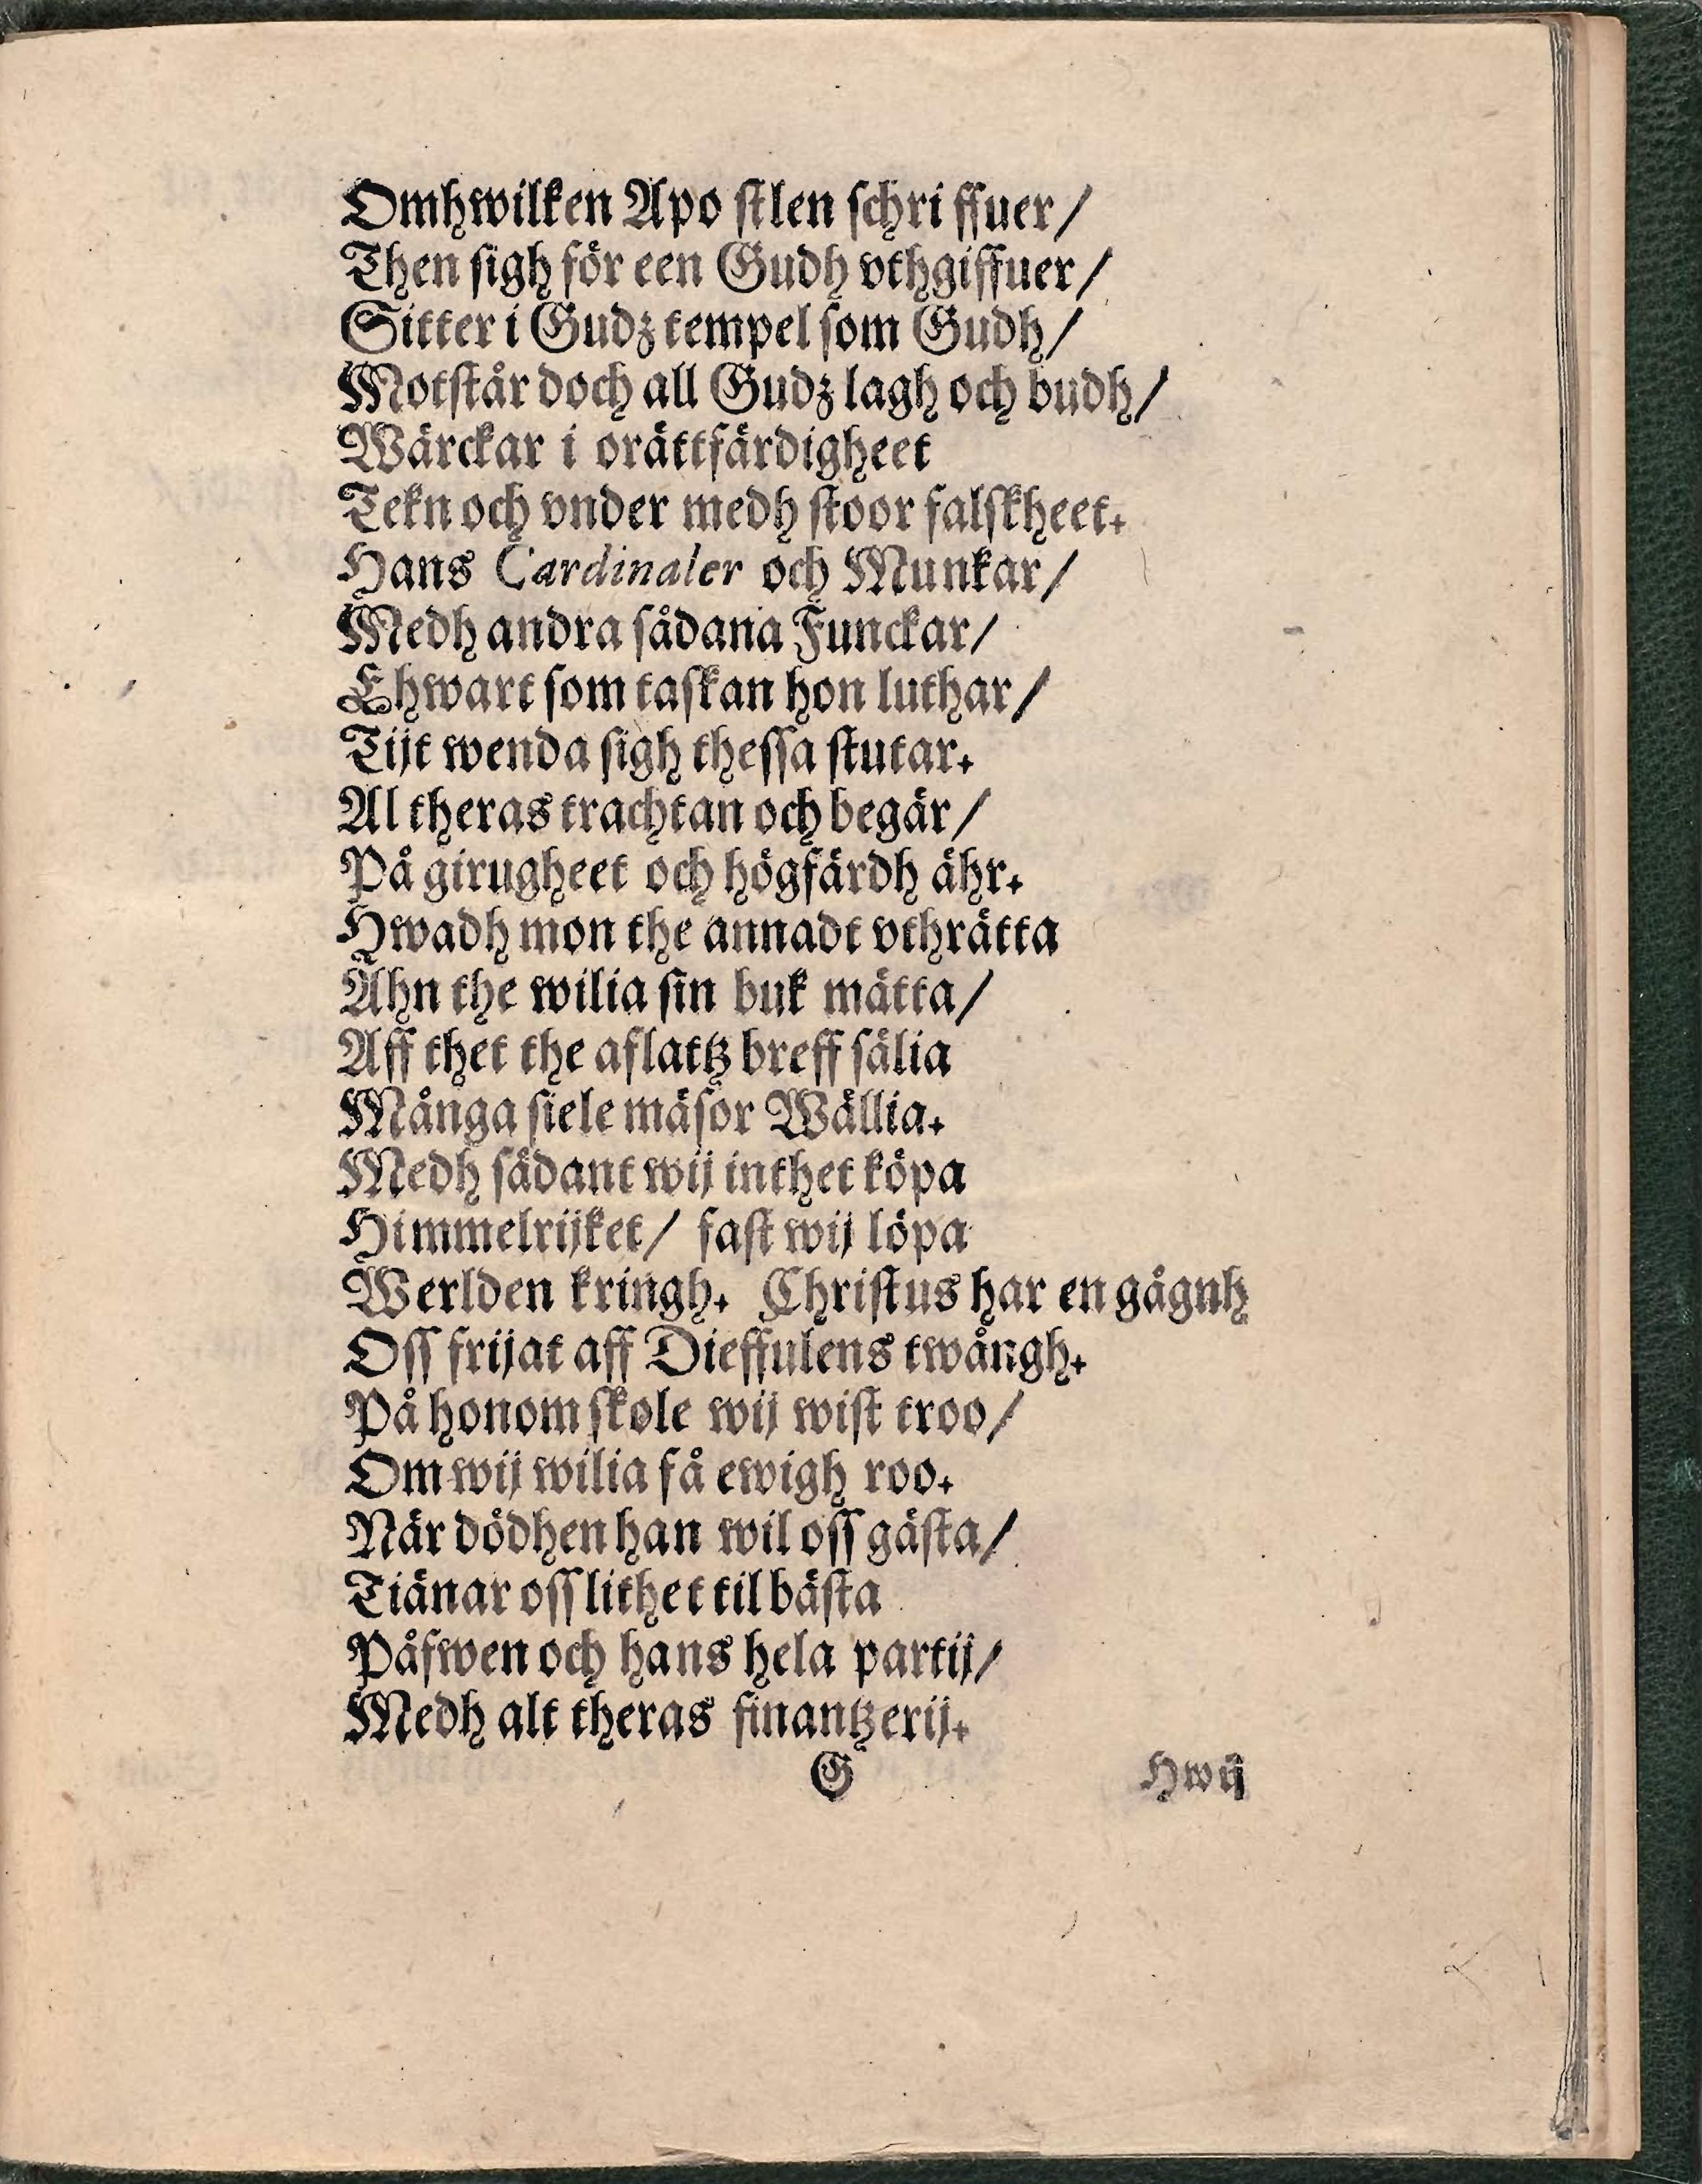 Omhwilken Apo stlen schri ffuer/
Then sigh för een Gudh vthgiffuer/
Sitter i Gudz tempel som Gudh/
Motstår doch all Gudz lagh och budh/
Wärckar i orättfärdigheet
Tekn och vnder medh stoor falskheet.
Hans Cardinaler och Munkar/
Medh andra sådana Funckar/
Ehwart som taskan hon luthar/
Tijt wenda sigh thessa stutar.
Al theras trachtan och begär/
På girugheet och högfärdh ähr.
Hwadh mon the annadt vthrätta
Ähn the wilia sin buk mätta/
Aff thet the aflattz breff sälia
Många siele mäsor Wällia.
Medh sådant wij inthet köpa
Himmelrijket/ fast wij löpa
Werlden kringh. Christus har en gågnh
Oss frijat aff Dieffulens twångh.
På honom skole wij wist troo/
Om wij wilia få ewigh roo.
När dödhen han wil oss gästa/
Tiänar oss lithet til bästa
Påfwen och hans hela partij/
Medh alt theras finantzerij.
G Hwij